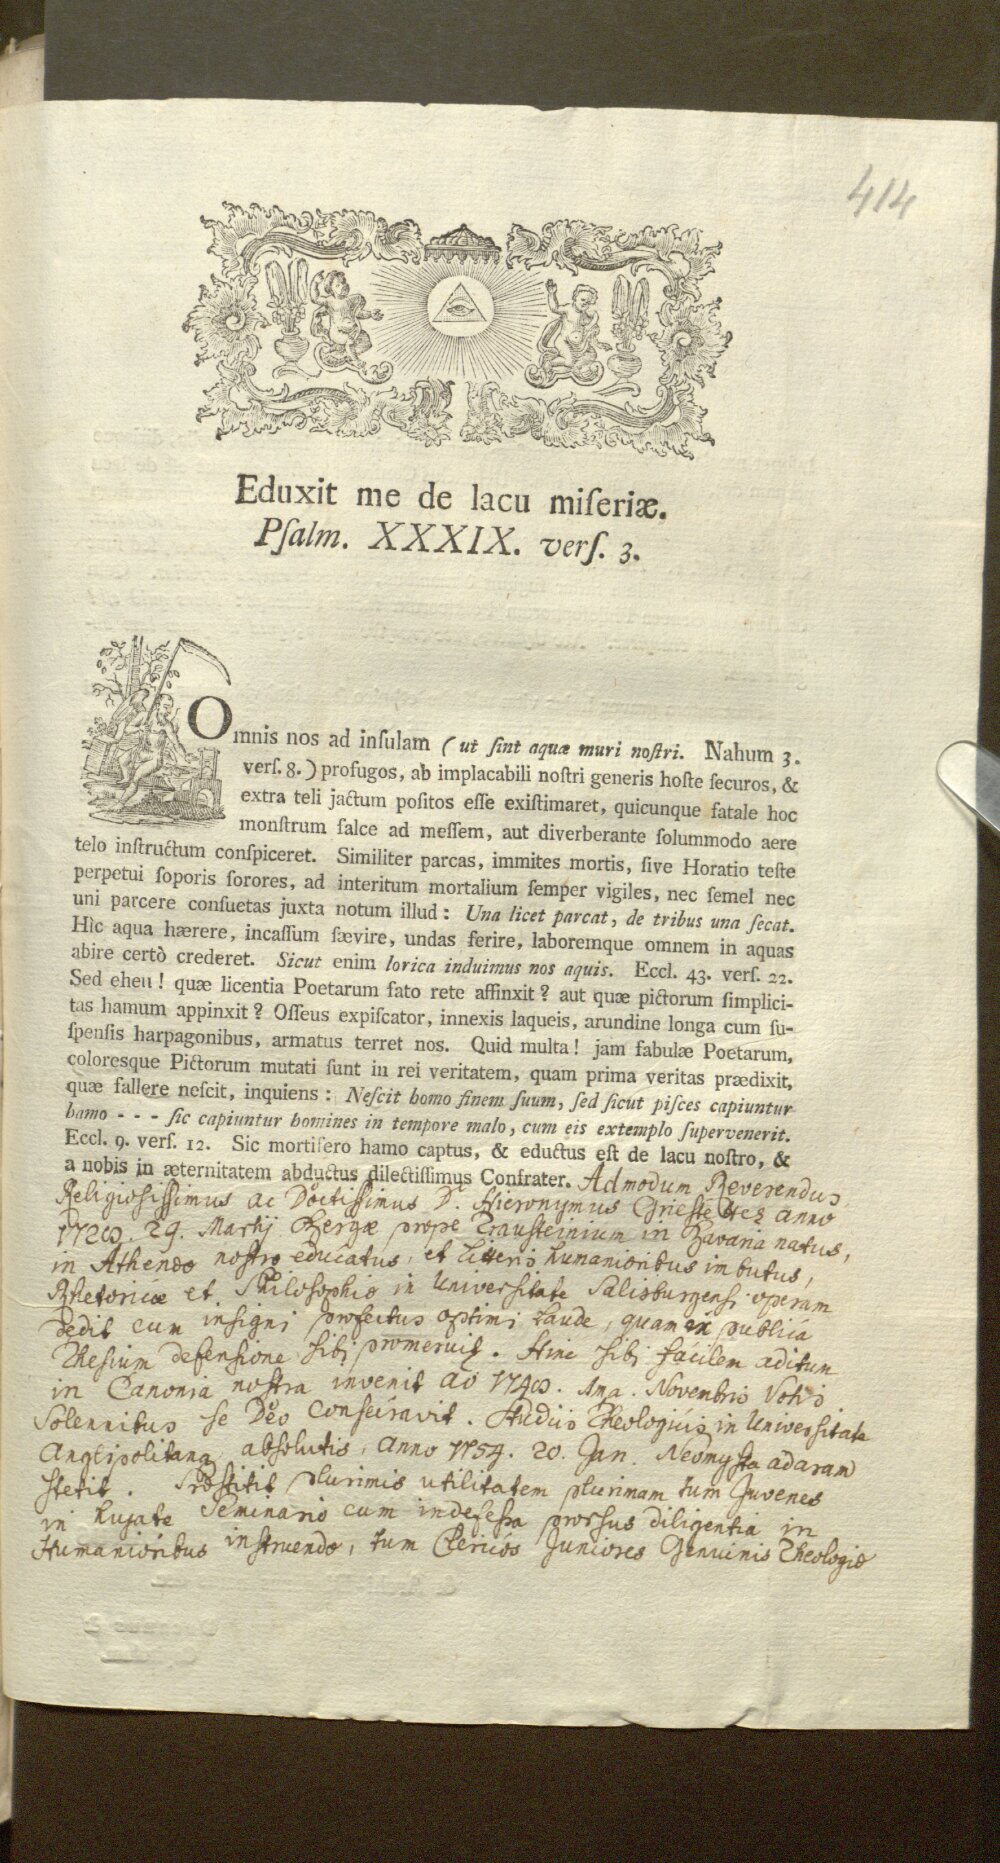 414
Eduxit me de lacu miſeriæ.
Pſalm. XXXIX. verſ. 3.
Omnis nos ad inſulam (ut ſint aquæ muri noſtri. Nahum 3.
verſ. 8.) profugos, ab implacabili noſtri generis hoſte ſecuros, &
extra teli jactum poſitos eſſe exiſtimaret, quicunque fatale hoc
monſtrum falce ad meſſem, aut diverberante ſolummodo aere
telo inſtructum conſpiceret. Similiter parcas, immites mortis, ſive Horatio teſte
perpetui ſoporis ſorores, ad interitum mortalium ſemper vigiles, nec ſemel nec
uni parcere conſuetas juxta notum illud: Una licet parcat, de tribus una ſecat.
Hìc aqua hærere, incaſſum ſævire, undas ferire, laboremque omnem in aquas
abire certò crederet. Sicut enim lorica induimus nos aquis. Eccl. 43. verſ. 22.
Sed eheu! quæ licentia Poetarum fato rete affinxit? aut quæ pictorum ſimplici-
tas hamum appinxit? Oſſeus expiſcator, innexis laqueis, arundine longa cum ſu-
ſpenſis harpagonibus, armatus terret nos. Quid multa! jam fabulæ Poetarum,
coloresque Pictorum mutati ſunt in rei veritatem, quam prima veritas prædixit,
quæ fallere neſcit, inquiens: Neſcit homo finem ſuum, ſed ſicut piſces capiuntur
hamo - - - ſic capiuntur homines in tempore malo, cum eis extemplo ſupervenerit.
Eccl. 9. verſ. 12. Sic mortifero hamo captus, & eductus eſt de lacu noſtro, &
a nobis in æternitatem abductus dilectiſſimus Confrater. Admodum Reverendus
Religiosissimus ac Doctissimus D. Hieronymus anno
29. Martij Bergæ prope Traunsteinium in Bavaria natus,
in Athenæo nostro educatus, et litteris humanioribus imbutus,
Rhetoricæ et Philosophiæ in Universitate Salisburgensi operam
dedit cum insigni profectus optimi laude, quam in publica
Thesium defensione sibi promeruit. Hinc sibi facilem aditum
in Canonia nostra invenit ac Novembris Votis
Solennibus se Deo consecravit. Studiis Theologicis in Universitate
Anglipolitana absolutis, Anno 1754. 20. Jan. Neomysta ad aram
stetit. Præstitit plurimis utilitatem plurimam tum Juvenes
in hujate Seminario cum indefessa prorsus diligentia in
Humanioribus instruendo, tum Clericos Juniores Genuinis Theologiæ